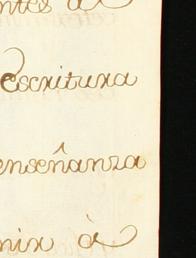 ntes de
escritura
enseñanza
nix à